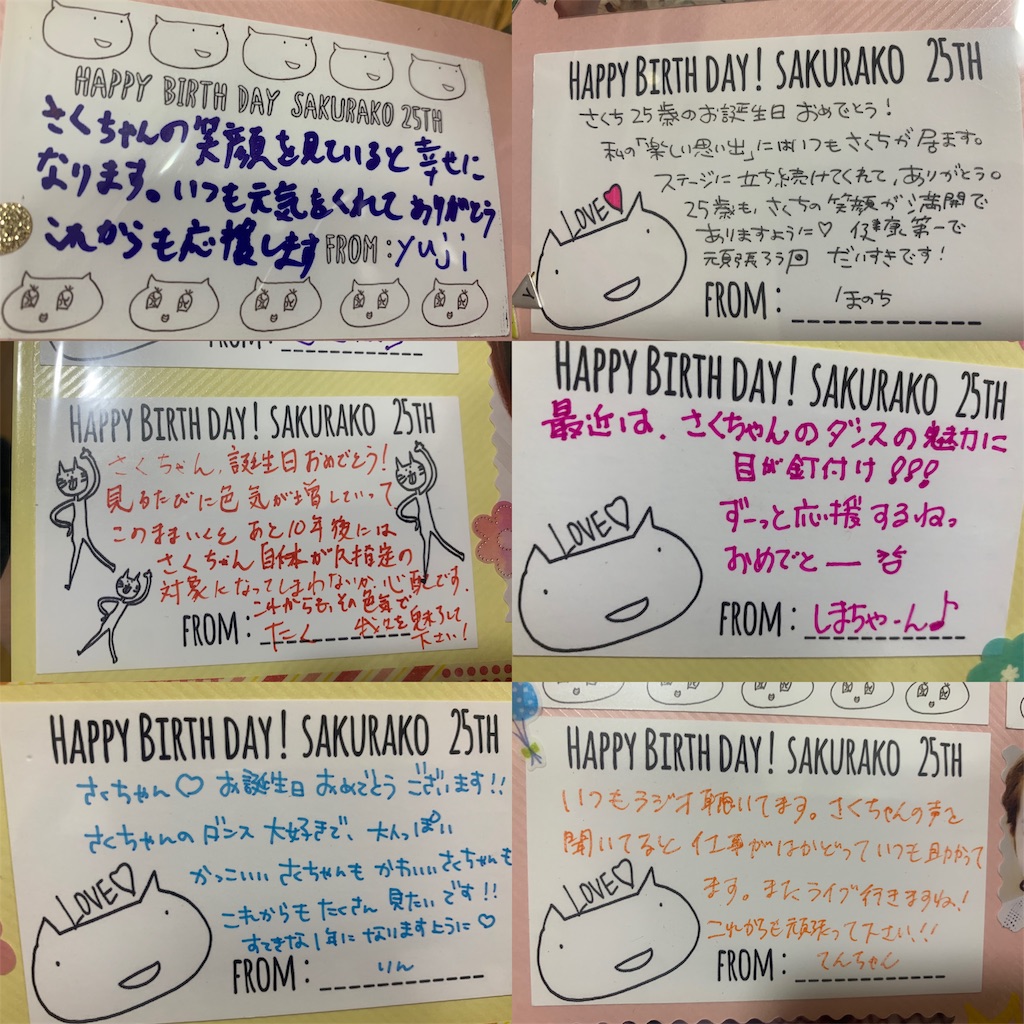 HAPPY BIRTH DAY SAKURAKO 25TH
さくちゃんの笑顔を見ていると幸せに
なります。いつも元気をくれてありがとう
これからも応援します
FROM : yuji
HAPPY BIRTH DAY! SAKURAKO 25TH
さくち25歳のお誕生日おめでとう!
私の「楽しい思い出」にはいつもさくちが居ます。
ステージに立ち続けてくれて、ありがとう。
25歳も、さくちの笑顔が満開で
ありますように♡ 健康第一で
頑張ろう だいすきです!
LOVE♥
FROM : ほのち
FROM :
HAPPY BIRTH DAY! SAKURAKO 25TH
さくちゃん、誕生日おめでとう!
見るたびに色気が増していって
このままいくと あと10年後には
さくちゃん自体がR指定の
対象になってしまわないか心配です.
これからも、その色気で
我々を魅了して
下さい!
FROM : たく
HAPPY BIRTH DAY! SAKURAKO 25TH
最近は、さくちゃんのダンスの魅力に
目が釘付け!!!
ずーっと応援するね。
おめでとー
LOVE♡
FROM : しまちゃーん♪
HAPPY BIRTH DAY! SAKURAKO 25TH
さくちゃん♡ お誕生日おめでとうございます!!
さくちゃんのダンス大好きで、大人っぽい
かっこいいさくちゃんもかわいいさくちゃんも
これからもたくさん見たいです!!
すてきな1年になりますように♡
LOVE♡
FROM : りん
HAPPY BIRTH DAY! SAKURAKO 25TH
いつもラジオ聴いてます。さくちゃんの声を
聞いてると仕事がはかどっていつも助かって
ます。またライブ行きますね!
これからも頑張って下さい!!
LOVE♡
FROM : てんちゃん